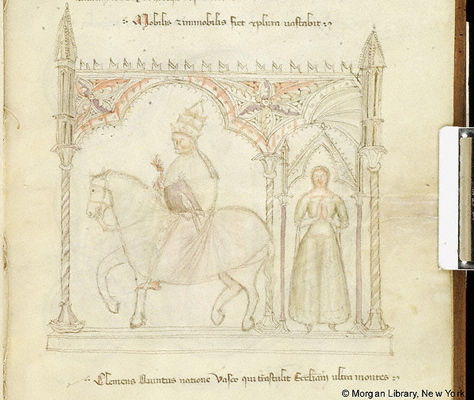 Mobilis z immobilis fiet z plura vastabit
Clemens Quintus natione Vasco qui transtulit Eccliam ultra montes
© Morgan Library, New York